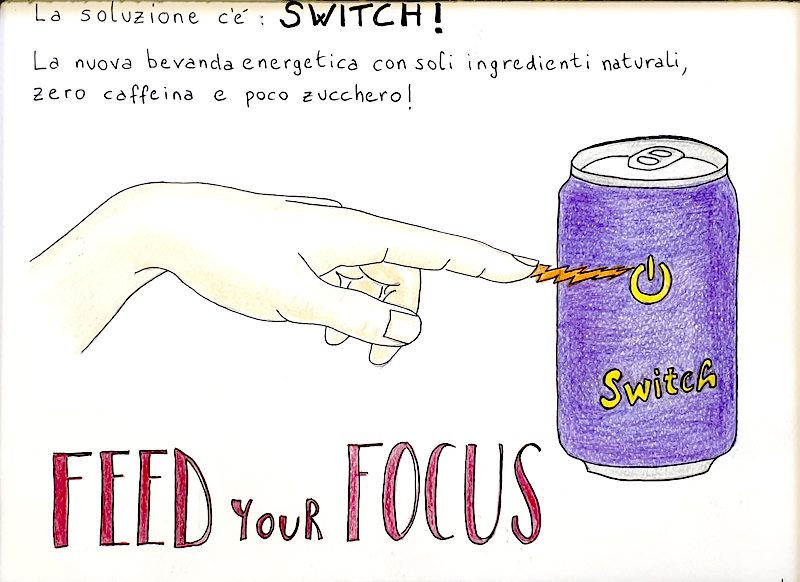 La soluzione c'é: SWITCH!
La nuova bevanda energetica con soli ingredienti naturali,
zero caffeina e poco zucchero!
Switch
FEED YOUR FOCUS